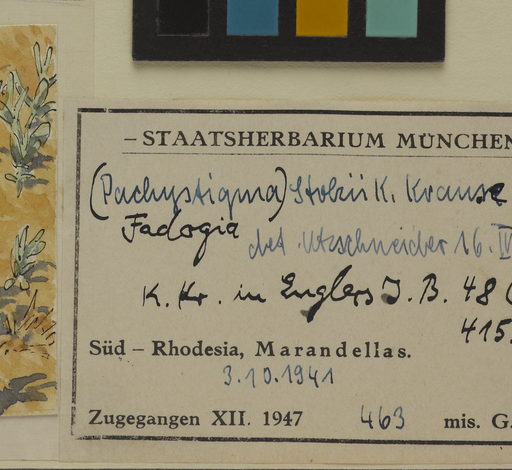 – STAATSHERBARIUM MÜNCHEN
(Pachystigma) Stolzii K. Krause
Fadogia det. Utzschneider 16. IV
K. Kr. in Englers J. B. 48 (
415.
Süd – Rhodesia, Marandellas.
3.10.1941
Zugegangen XII. 1947 463 mis. G.